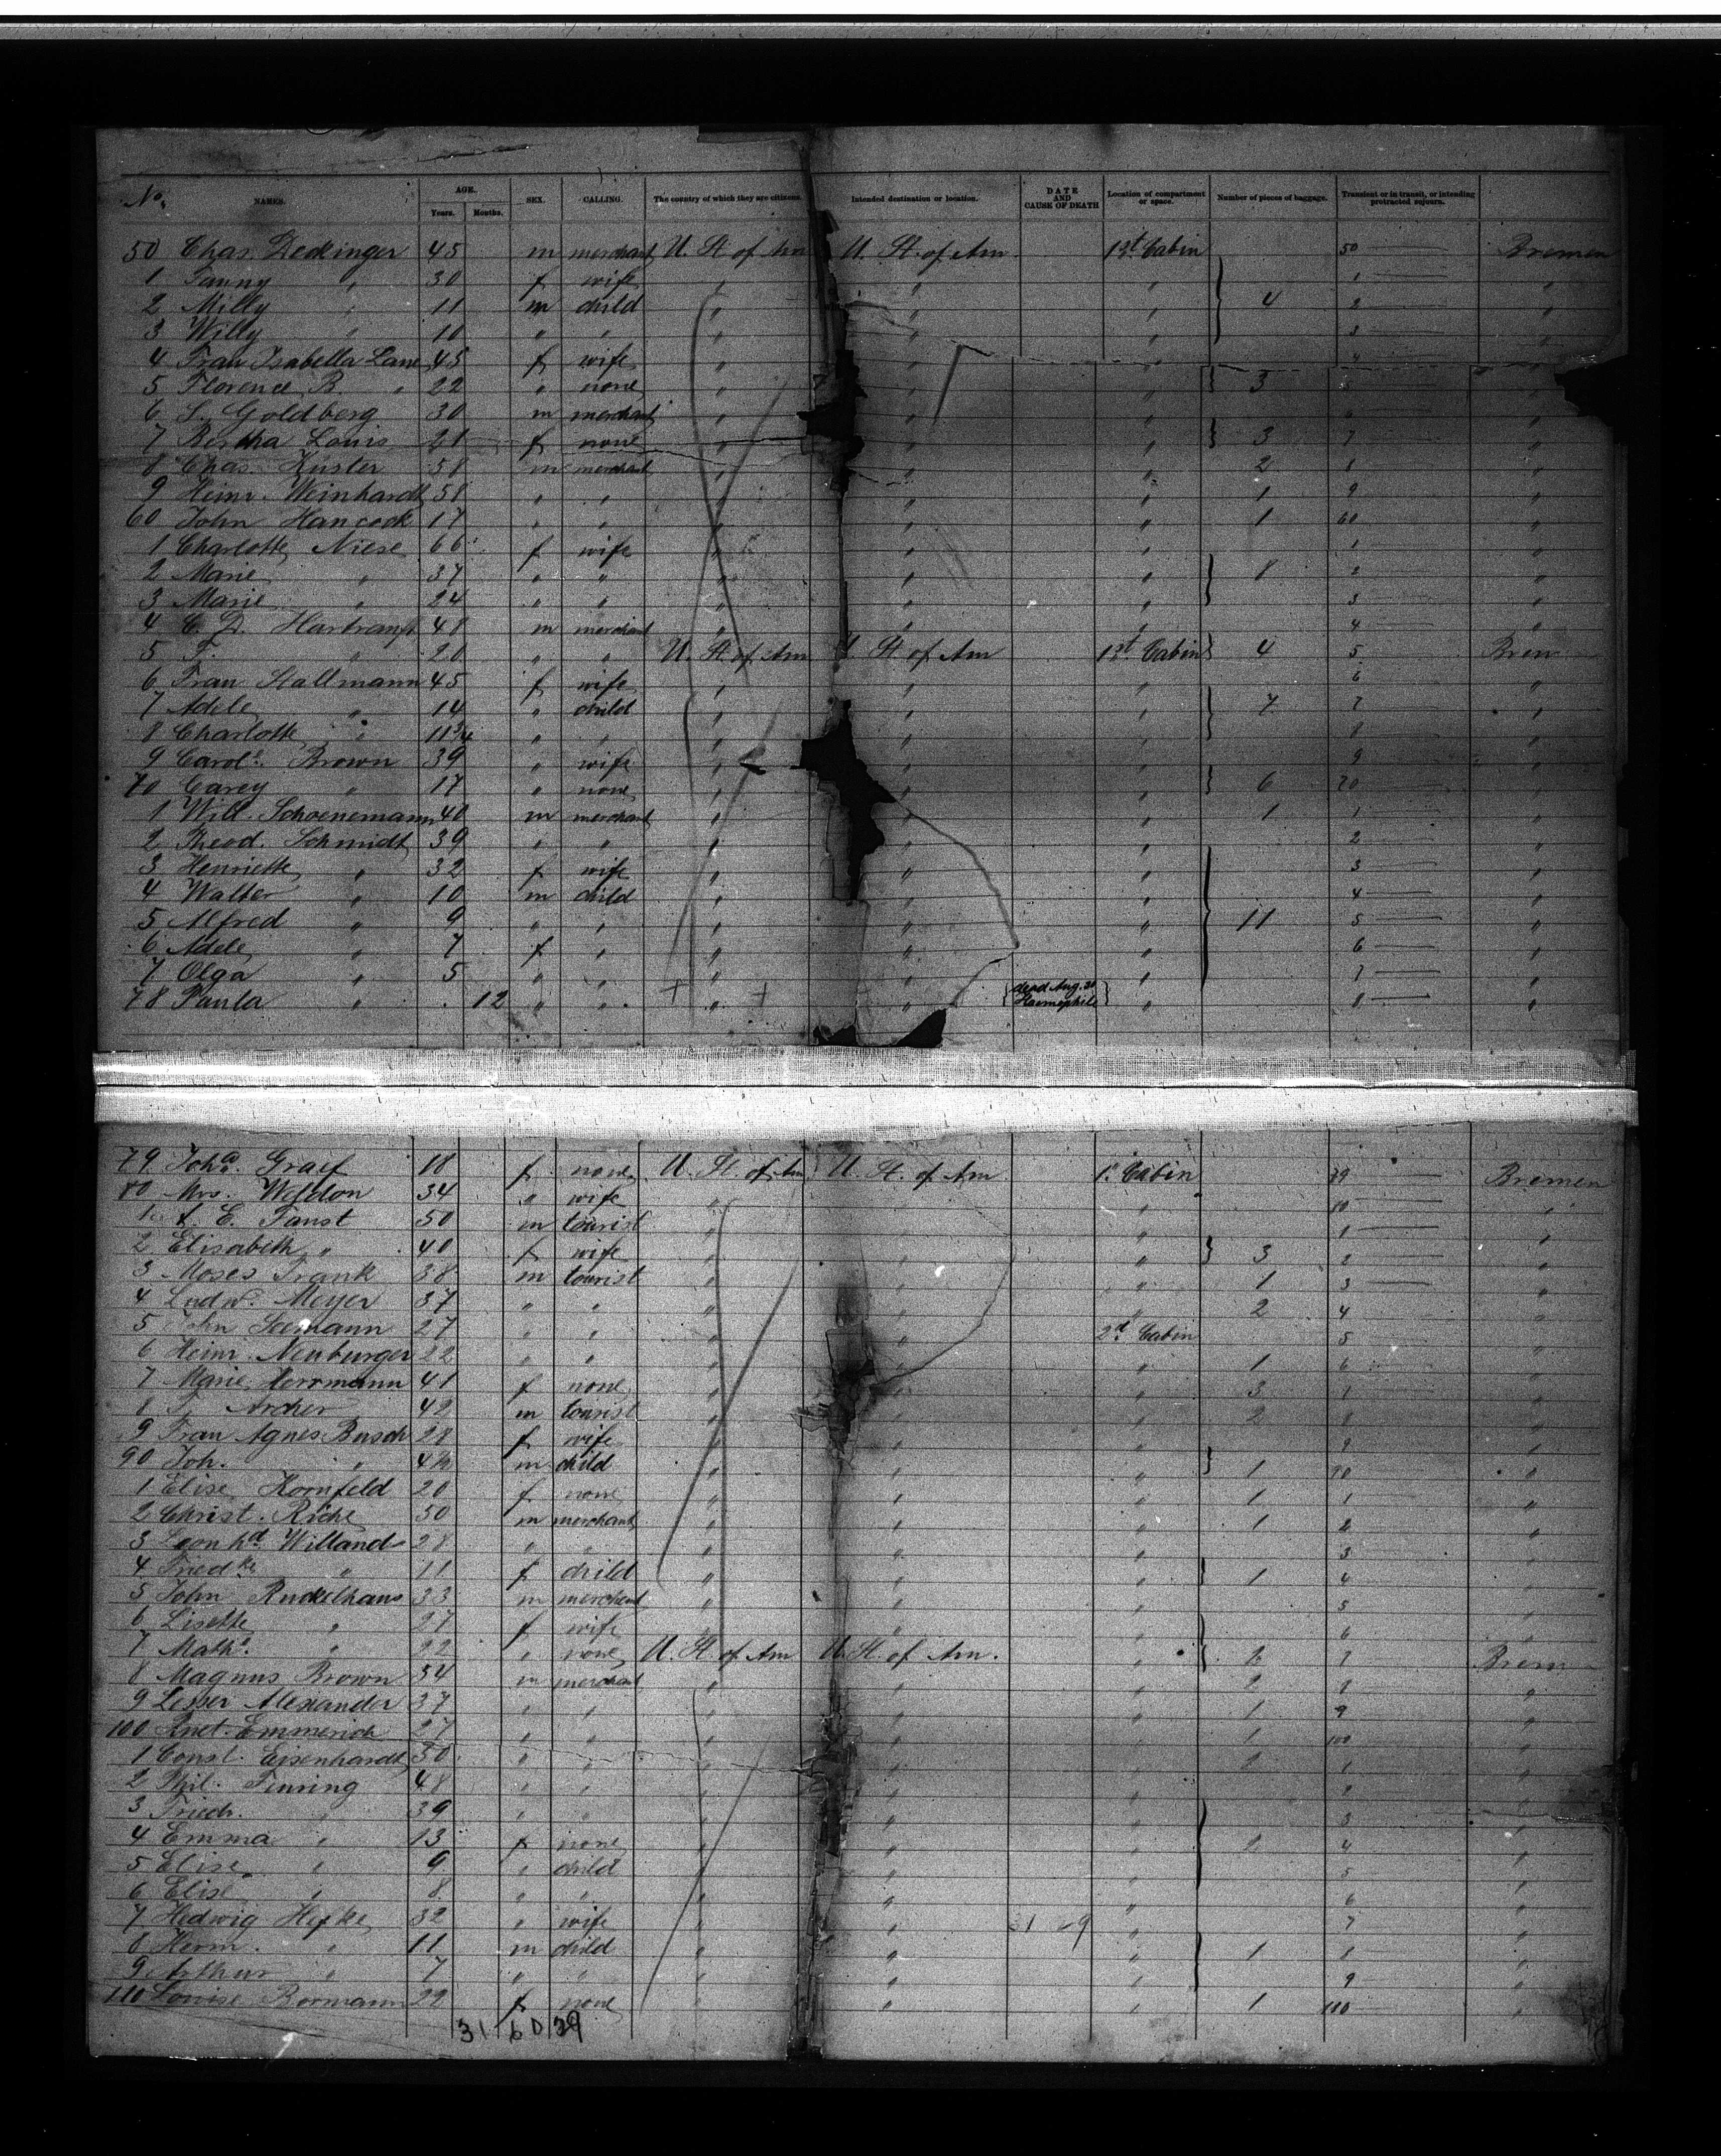 No. NAMES. AGE. Years. Months. SEX. CALLING. The country of which they are citizens. Intended destination or location. DATE AND CAUSE OF DEATH Location of compartment or space. Number of pieces of baggage. Transient or in transit, or intending protracted sojourn.
50 Chas. Deckinger 45 m merchant U. St. of Am U. St. of Am. 1st Cabin 50 Bremen
1 Fanny " 30 f wife " " " 1 "
2 Milly " 11 m child " " " 4 2 "
3 Willy " 10 " " " " " 3 "
4 Frau Isabella Lane 45 f wife " " " 4 "
5 Florence B. " 22 " none " " " 3 5 "
6 S. Goldberg 30 m merchant " " " 6 "
7 Bertha Louis 21 f none " " " 3 7 "
8 Chas. Küster 58 m merchant " " " 2 8 "
9 Heinr. Weinhardt 58 " " " " " 1 9 "
60 John Hancock 17 " " " " " 1 60 "
1 Charlotte Niese 66 f wife " " " 1 "
2 Marie " 37 " " " " " 8 2 "
3 Marie " 24 " " " " " 3 "
4 C. D. Hartranft 48 m merchant " " " 4 "
5 F. " 20 " " U. St. of Am U. St. of Am 1st Cabin 4 5 Brem
6 Frau Hallmann 45 f wife " " 6 "
7 Adele " 14 " child " " " 7 7 "
8 Charlotte " 11 3/4 " " " " " 8 "
9 Carole. Brown 39 " wife " " " 9 "
70 Carey " 17 " none " " " 6 70 "
1 Will. Schoenemann 40 m merchant " " " 1 1 "
2 Theod. Schmidt 39 " " " " " 2 "
3 Henriette " 32 f wife " " " 3 "
4 Walter " 10 m child " " " 4 "
5 Alfred " 9 " " " " " 11 5 "
6 Adele " 7 f " " " " 6 "
7 Olga " 5 " " " " " 7 "
78 Paula " 12 " " " " dead Aug. 20 Haemophile " 8 "
79 Joha. Graef 18 f none U. St. of Am U. St. of Am 1. Cabin 79 Bremen
80 Mrs. Weldon 34 " wife " " " 80 "
1 A. E. Faust 50 m tourist " " " 1 "
2 Elisabeth " 40 f wife " " " 3 2 "
3 Moses Frank 38 m tourist " " " 1 3 "
4 Ludw. Meyer 37 " " " " " 2 4 "
5 John Seemann 27 " " " " 2d. Cabin 5 "
6 Heinr. Neuburger 22 " " " " " 1 6 "
7 Marie Herrmann 41 f none " " " 3 7 "
8 Archer 42 m tourist " " " 2 8 "
9 Frau Agnes Busch 28 f wife " " " 9 "
90 Joh. " 4 1/2 m child " " " 1 90 "
1 Elise Kornfeld 20 f none " " " 1 1 "
2 Christ. Riche 50 m merchant " " " 1 2 "
3 Leonhd. Willand 28 " " " " " 3 "
4 Friedke " 11 f child " " " 1 4 "
5 John Ruckelhaus 33 m merchant " " " 5 "
6 Lisette " 27 f wife " " 6 "
7 Mathe. " 22 " none U. St. of Am U. St. of Am. " 2 7 Brem
8 Magnus Brown 54 m merchant " " 2 8 "
9 Lesser Alexander 37 " " " " " 1 9 "
100 Emmerich 27 " " " " " 1 100 "
1 Const. Eisenhardt 50 " " " " " 2 1 "
2 Phil. Feuring 48 " " " " " 2 "
3 Friedr. " 39 " " " " " 3 "
4 Emma " 13 f none " " " 2 4 "
5 Elise " 9 " child " " " 5 "
6 Elise " 8 " " " " " 6 "
7 Hedwig Hefke 32 " wife " " " 7 "
8 Herm. " 11 m child " " " 1 8 "
9 Arthur " 7 " " " " " 9 "
110 Louise Bormann 22 f none " " " 1 110 "
31 60 29